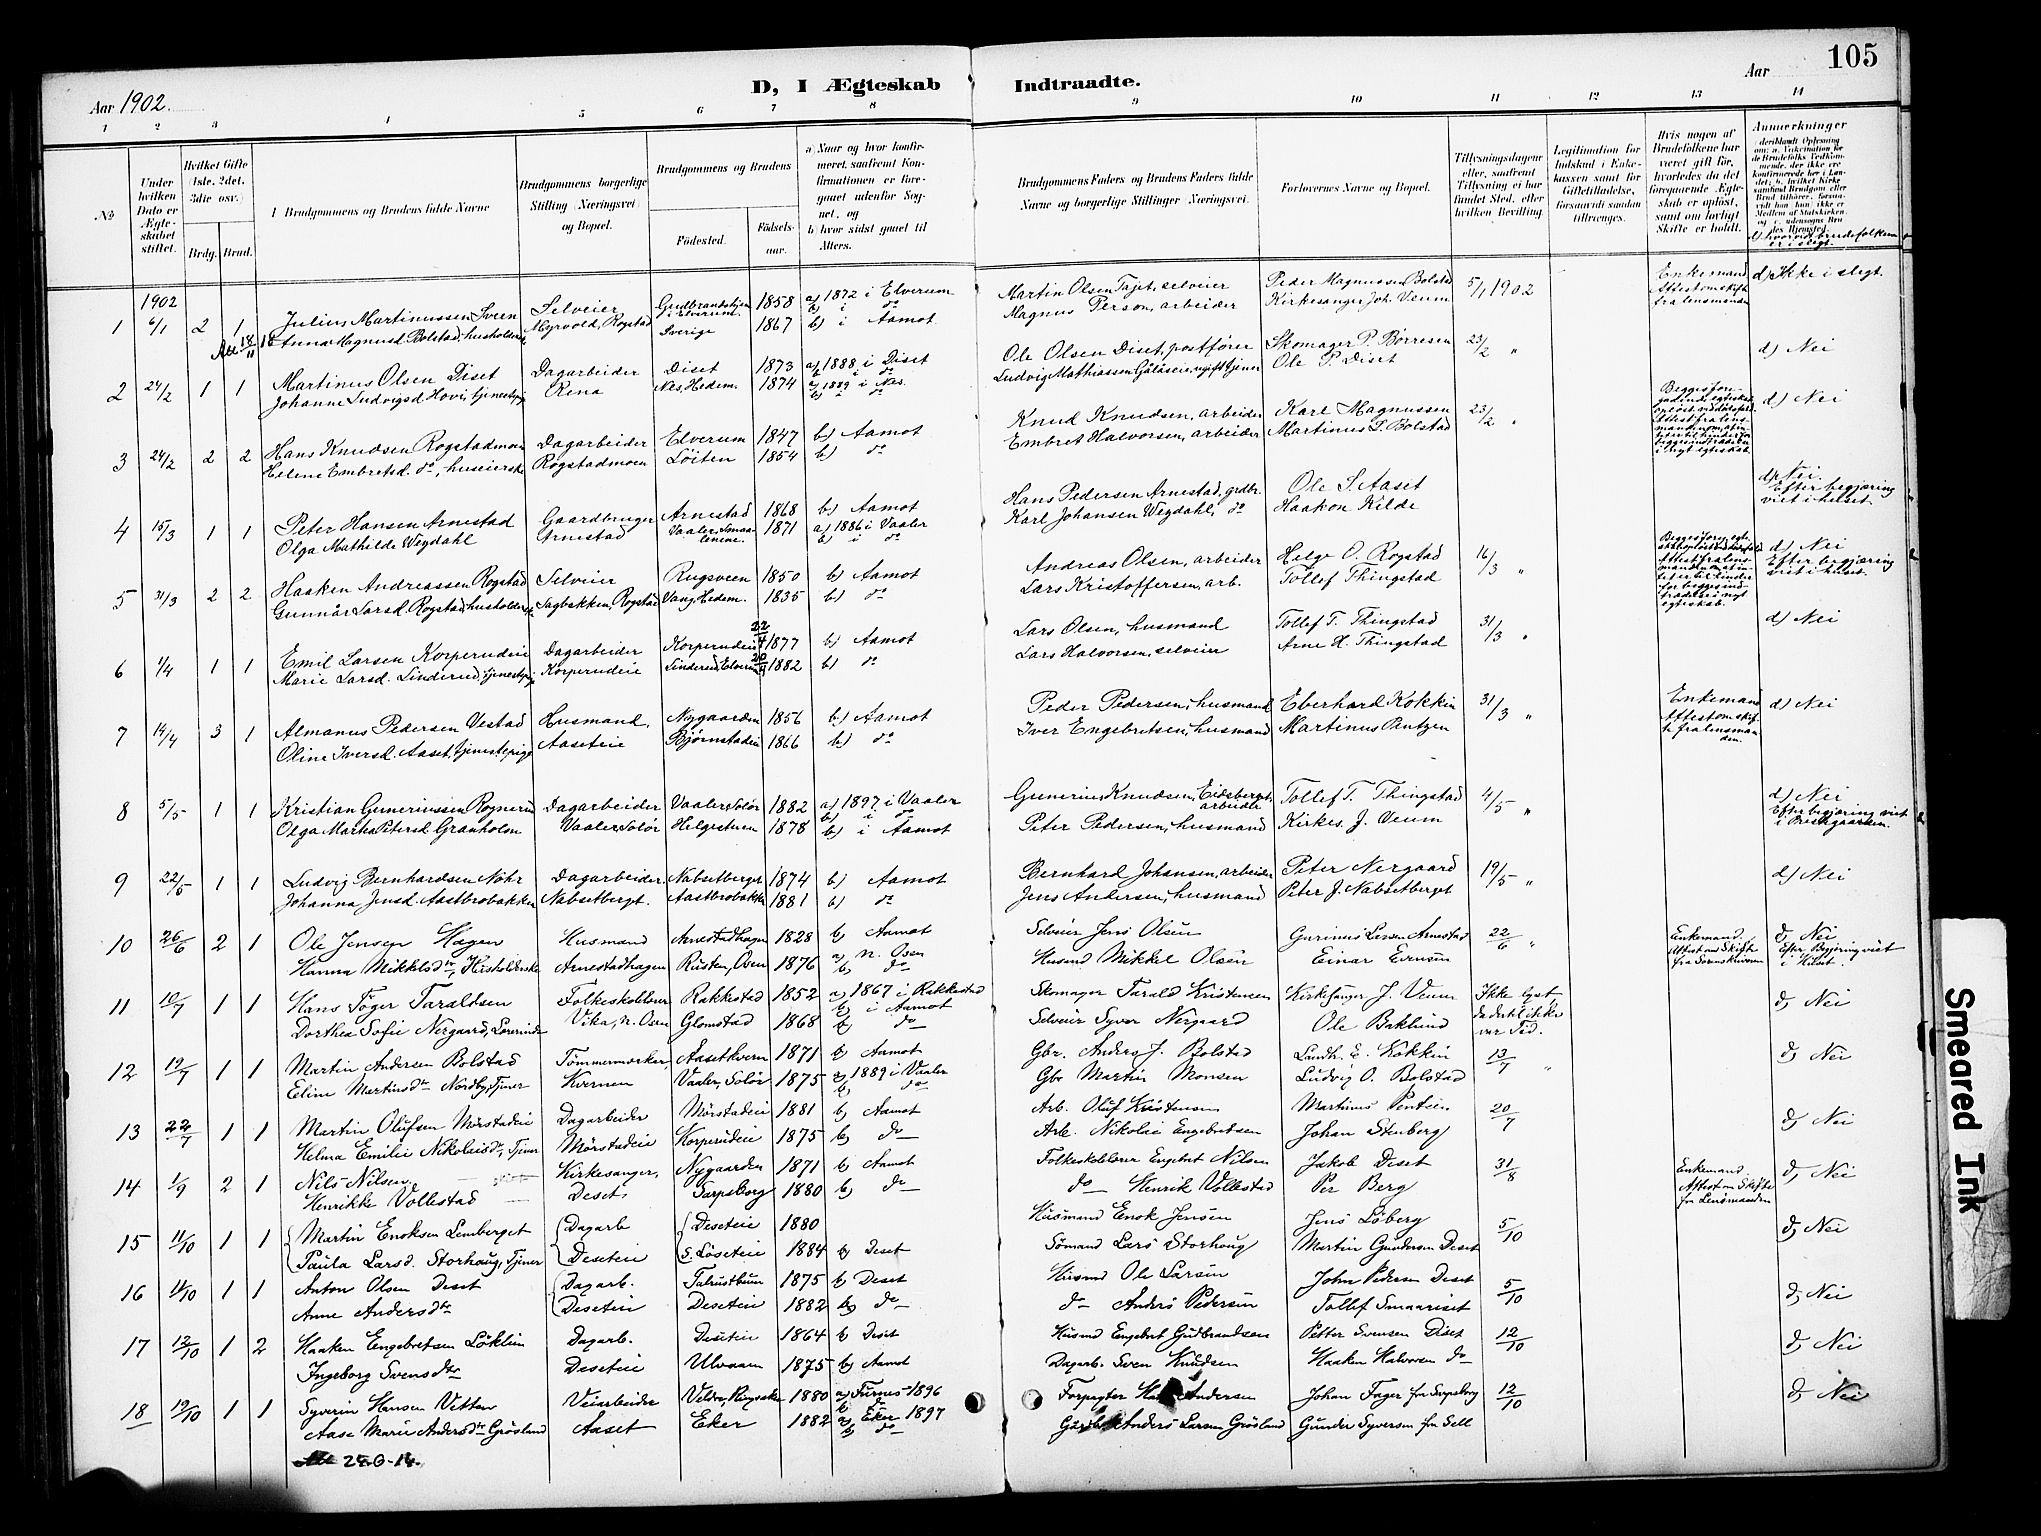 105
D, I Ægteskab Indtraadte.
Aar 1902. Aar
1 2 3 4 5 6 7 8 9 10 11 12 13 14
No
Under hvilken Dato er Ægteskabet stiftet.
Hvilket Gifte (1ste, 2det, 3die osv.)
Brdg. Brud.
Brudgommens og Brudens fulde Navne
Brudgommens borgerlige Stilling (Næringsvei) og Bopæl.
Brudgommens og Brudens
Födested. Födselsaar.
a) Naar og hvor konfirmeret, saafremt Konfirmationen er foregaaet udenfor Sognet, og
b) hvor sidst gaaet til Alters.
Brudgommens Faders og Brudens Faders fulde Navne og borgerlige Stillinger (Næringsvei).
Forlovernes Navne og Bopæl.
Tillysningsdagene eller, saafremt Tillysning ei har fundet Sted, efter hvilken Bevilling.
Legitimation for Indskud i Enkekassen samt for Giftetilladelse, forsaavidt saadan tiltrænges.
Hvis nogen af Brudefolkene har været gift før, hvorledes da det foregaaende Ægteskab er opløst, samt om lovligt Skifte er holdt.
Anmerkninger
d) hvorvidt brudefolkene er i slegt.
1902
1 6/1 2 1 Julius Martinussen Sveen Selveier Gudbrandstjen i Elverum 1858 a) 1872 i Elverum Martin Olsen Tajet, selveier Peder Magnussen Bolstad 5/1 1902 Enkemand d) Ikke i slegt.
Anna Magnusd. Bolstad, husholderske Myrvold, Rogstad Sverige 1867 b) i Aamot Magnus Person, arbeider Kirkesanger Joh. Veum Attest om skifte fra lensmanden
2 24/2 1 1 Martinus Olsen Diset Dagarbeider Diset 1873 a) 1888 i Diset Ole Olsen Diset, postfører Skomager P. Børresen 23/2 " d) Nei
Johanne Ludvigsd. Hovi, tjenestepige Rena Nes, Hedem. 1874 a) 1889 i Nes. Ludvig Mathiassen Gålåseie, ugift tjener Ole P. Diset
3 24/2 2 2 Hans Knudsen Rogstadmoen Dagarbeider Elverum 1847 b) Aamot Knud Knudsen, arbeider Karl Magnussen 23/2 " d) Nei
Helene Embretsd. do, huseierske Rogstadmoen Löiten 1854 b) do Embret Halvorsen, arbeider Martinus P. Bolstad
4 15/3 1 1 Peter Hansen Arnestad Gaardbruger Arnestad 1868 b) Aamot Hans Pedersen Arnestad, grdbr. Ole S. Aaset d) Nei. Efter begjæring viet i huset.
Olga Mathilde Wegdahl Arnestad Vaaler, Smaalenene. 1871 a) 1886 i Vaaler Karl Johansen Wegdahl, do Haakon Kilde
5 31/3 2 2 Haaken Andreassen Rogstad Selveier Rugsveen 1850 b) Aamot Andreas Olsen, arbeider Helge O. Rogstad 16/3 " d) Nei Efter begjæring viet i huset.
Gunnår Larsd. Rogstad, husholderske Sagbakken, Rogstad Vang, Hedem. 1835 b) do Lars Kristoffersen, arb. Tollef Thingstad
6 1/4 1 1 Emil Larsen Korperudeie Dagarbeider Korperudeie 22/4 1877 b) Aamot Lars Olsen, husmand Tollef T. Thingstad 31/3 " d) Nei
Marie Larsd. Linderud, tjenestepige Korperudeie Linderud, Elverum 1882 b) do Lars Halvorsen, selveier Arne H. Thingstad
7 14/4 3 1 Almanus Pedersen Vestad Husmand, Nygaarden 1856 b) Aamot Peder Pedersen, husmand Eberhard Kokkin 31/3 " Enkemand d) Nei
Oline Iversd. Aaset, tjenestepige Aaseteie Bjørnstadeie 1866 b) do Iver Engebretsen, husmand Martinus Rutzen Attest om skifte fra lensmanden.
8 5/5 1 1 Kristian Gumeriussen Rognerud Dagarbeider Vaaler, Solør 1882 a) 1897 i Vaaler Gumerius Knudsen, Eidsberget, arbeider Tollef T. Thingstad 4/5 " d) Nei Efter begjæring viet i Prestegaarden.
Olga Martha Petersd. Granholm Vaaler, Solør Helgestuen 1878 b) i Aamot Peter Pedersen, husmand Kirkes. J. Veum
9 22/5 1 1 Ludvig Bernhardsen Nohr Dagarbeider. Nabsetberget 1874 b) Aamot Bernhard Johansen, arbeider Peter Nergaard 19/5 " d) Nei
Johanna Jensd. Aastbrobakken Nabsetbergt. Aastbrobakken 1881 b) do Jens Andersen, husmand Peter J. Nabsetberget
10 26/6 2 1 Ole Jensen Hagen Husmand Arnestadhagen 1828 b) Aamot Selveier Jens Olsen Gunnus Larsen Arnestad 22/6 " Enkemand. d) Nei
Hanna Mikkelsdtr, Husholderske Arnestadhagen Rusten, Osen 1876 a) N. Osen b) do Husmd Mikkel Olsen Einar Evensen Attest om Skifte fra Sorenskriveren Efter Begjæring viet i Huset.
11 10/7 1 1 Hans Töger Taraldsen Folkeskolelærer Rakkestad 1852 a) 1867 i Rakkestad b) i Aamot Skomager Tarald Kristensen Kirkesanger J. Veum Ikke lyst, da dertil ikke var Tid. d) Nei
Dorthea Sofie Nergaard, Lærerinde Vika, N. Osen Glomstad 1868 b) do Selveier Syver Nergaard Ole Baklund
12 19/7 1 1 Martin Andersen Bolstad Tömmermerker, Aasetkvern 1871 b) Aamot Gbr. Anders J. Bolstad Landh. E. Kokkin 13/7 " d) Nei
Eline Martinsdtr Nordby, Tjener Kvernen Vaaler, Solör 1875 a) 1889 i Vaaler b) do Gbr Martin Monsen Ludvig O. Bolstad
13 22/7 1 1 Martin Olufsen Mörstadeie Dagarbeider Mörstadeie 1881 b) Aamot Arb. Oluf Kristensen Martinus Pentzen 20/7 d) Nei
Helma Emilie Nikolaisdtr, Tjener Mörstadeie Korperudeie 1875 b) do Arb. Nikolai Engebretsen Johan Stenberg
14 1/9 2 1 Nils Nilsen Kirkesanger, Nygaarden 1871 b) Aamot Folkeskolelærer Engebret Nilsen Jakob Deset 31/8 Enkemand. d) Nei
Henrikke Vollestad Deset. Sarpsborg 1880 b) do do Henrik Vollestad Per Berg Attest om Skifte fra Lensmanden
15 11/10 1 1 Martin Enoksen Lemberget Dagarb Deseteie 1880 Husmand Enok Jensen Jens Löberg 5/10 d) Nei
Paula Larsd. Storhaug, Tjener Deseteie S. Löseteie 1884 b) Deset Sömand Lars Storhaug Martin Gundersen Deset
16 11/10 1 1 Anton Olsen Deset Dagarb. Talrustbuen 1875 b) Deset Husmd Ole Larsen John Pedersen Deset 5/10 d) Nei
Anne Andersdtr Deseteie Deseteie 1882 b) do do Anders Pedersen Tollef Smaariset
17 12/10 1 2 Haaken Engebretsen Löklien Dagarb. Deseteie 1864 b) Deset Husmd Engebret Gudbrandsen Petter Svensen Diset 12/10 d) Nei
Ingeborg Svensdtr Deseteie Ulvaaen 1875 b) Aamot Dagarb. Sven Knudsen Haaken Halvorsen do
18 19/10 1 1 Syverin Hansen Vitten Veiarbeider Veldre, Ringsaker 1880 a) Furnes 1896 b) do Forpagter Andersen Johan Fager fra Sarpsborg 12/10 d) Nei
Aase Marie Andersdtr Grösland Aaset Eker 1882 a) Eker 1897 b) do Anders Larsen Grösland Gunder Syversen fra Sell
24-6-14.
Smeared Ink